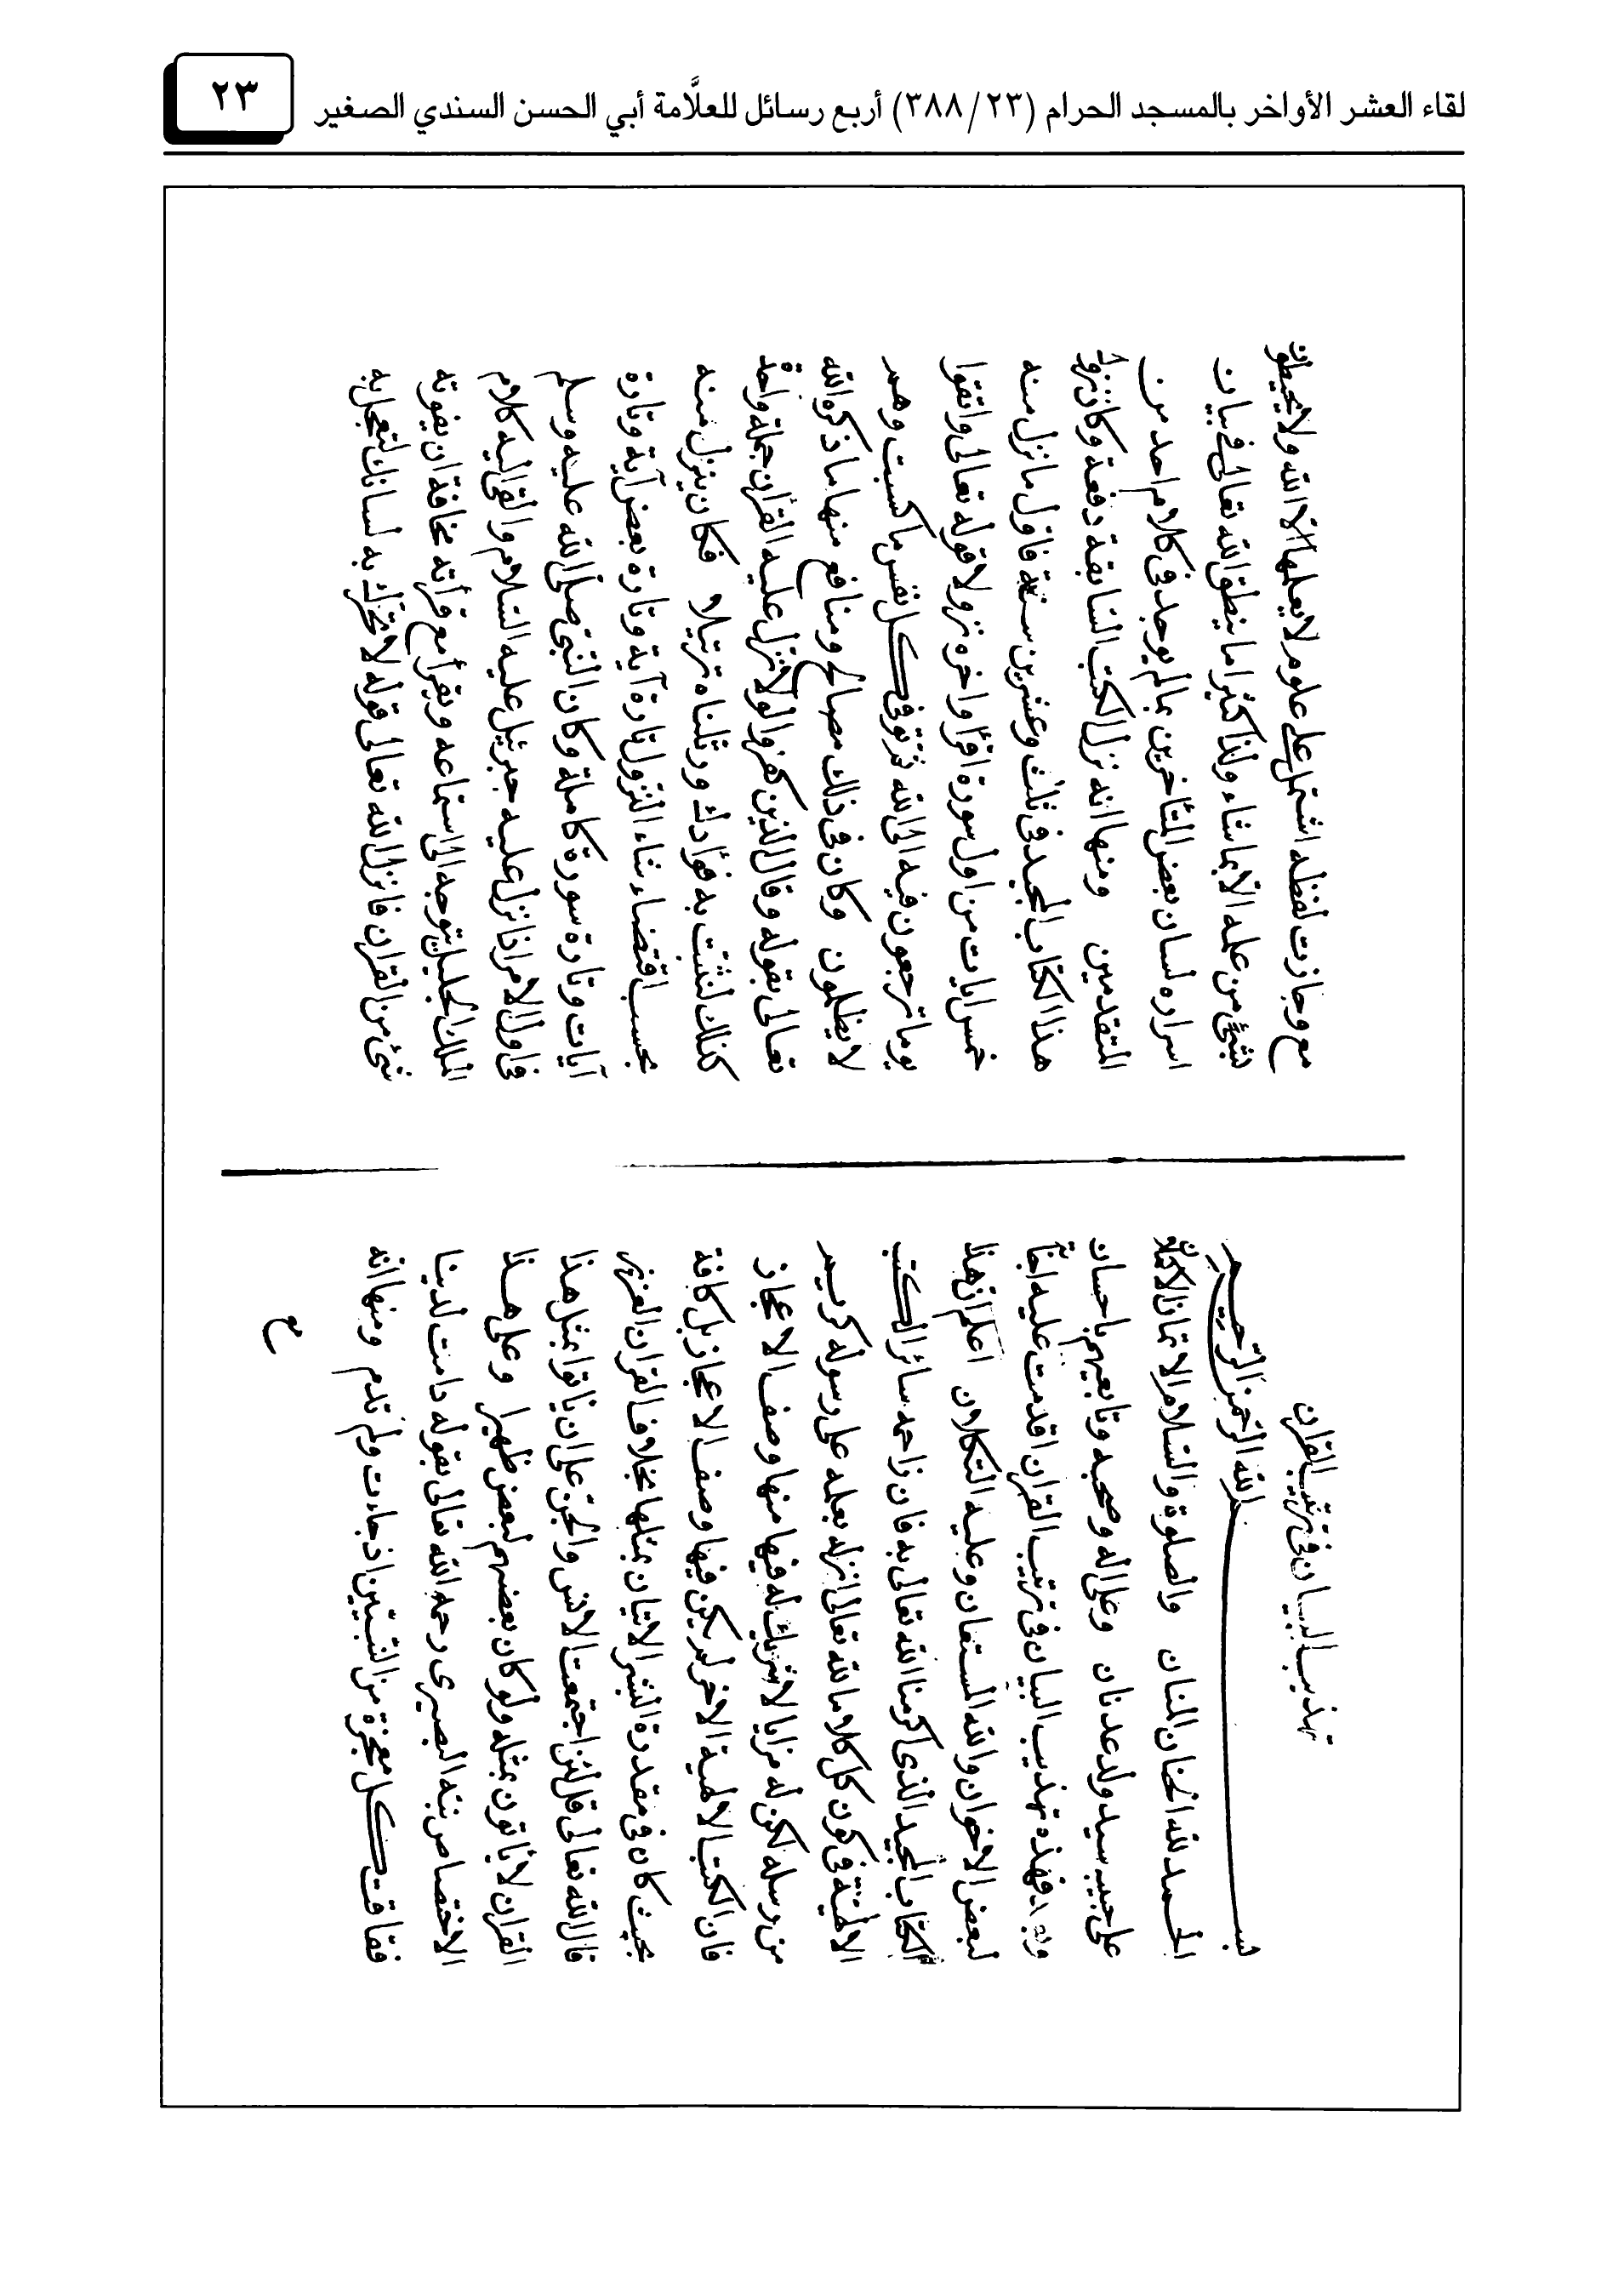 لقاء العشر الأواخر بالمسجد الحرام (٢٣/ ٣٨٨) أربع رسائل للعلَّامة أبي الحسن السندي الصغير
٢٣
تهذيب البيان في ترتيب القران
بسم الله الرحمن الرحيم
الحمد لله الحنان المنان والصلوة والسلام الاتمان الاكملان
على حبيب سيد ولد عدنان وعلى اله وصحبه وتابعيهم باحسان
وبعد فهذه تهذيب البيان في ترتيب القران اقدمت عليه اجابة
لبعض الاخوان والله المستعان وعليه التكلان اعلم ان هذا
الكتاب المجيد الذى اكرمنا الله تعالى به فان زاحمه سائر الكتب
الالهية في كون كل كلام الله تعالى انزله بعلمه على رسوله كريم
من رسله لكن له مزايا لا شريك له فيها منها وصف الاعجاز
فان الكتب الالهية الاخر لم يكن فيها وصف الاعجاز بل كافة
بحيث كان في مقدرة البشر الاتيان بمثلها بخلاف القران العزيز
قال الله تعالى قل لئن اجتمعت الانس والجن على ان ياتوا بمثل هذا
القران لا ياتون بمثله ولو كان بعضهم لبعض ظهيرا وعلى هذا
الاختصاص نبه البصيرى رحمه الله تعالى بقوله دامت لدينا
ففاقت كل معجزة من النبيين اذ جاءت ولم تدم ومنها انه
مع
مع وجازت لفظه اشتمل على علوم لا يعلمها الا الله ولا يحيطون
بشئ من علمه الا بما شاء ولذا كثيرا ما ينطق الله تعالى في بيان
اسراره لسان بعض المتأخرين بما لم يوجد في كلام احد من
المتقدمين ومنها انه نزل الكتب السابقة دفعة وكان نزول
هذا الكتاب المجيد في ثلث وعشرين سنة فاول ما نزل منه
خمس ايات من اول سورة اقرأ واخره نزولا قوله تعالى واتقوا
يوما ترجعون فيه الى الله ثم توفى كل نفس ما كسبت وهم
لا يظلمون وكان في ذلك مصالح ومنافع منها ما ذكره الله
تعالى بقوله وقال الذين كفروا لولا نزل عليه القرأن جملة واحدة
كذلك لنثبت به فؤادك ورتلناه ترتيلا فكان ينزل منه
بحسب اقتضاء شاء النزول تارة آية وتارة بعض آية وتارة
آيات وتارة سورة كاملة وكان النبى صلى الله عليه وسلم
في اول الامر اذا نزل عليه جبرئيل عليه السلام والقى اليه كلام
الملك الجليل يتوجه الى استماعه ويقرأ مع قرأته مخافة ان يفوته
شئ من القران فانزل الله تعالى قوله لا تحرك به لسانك لتعجل به